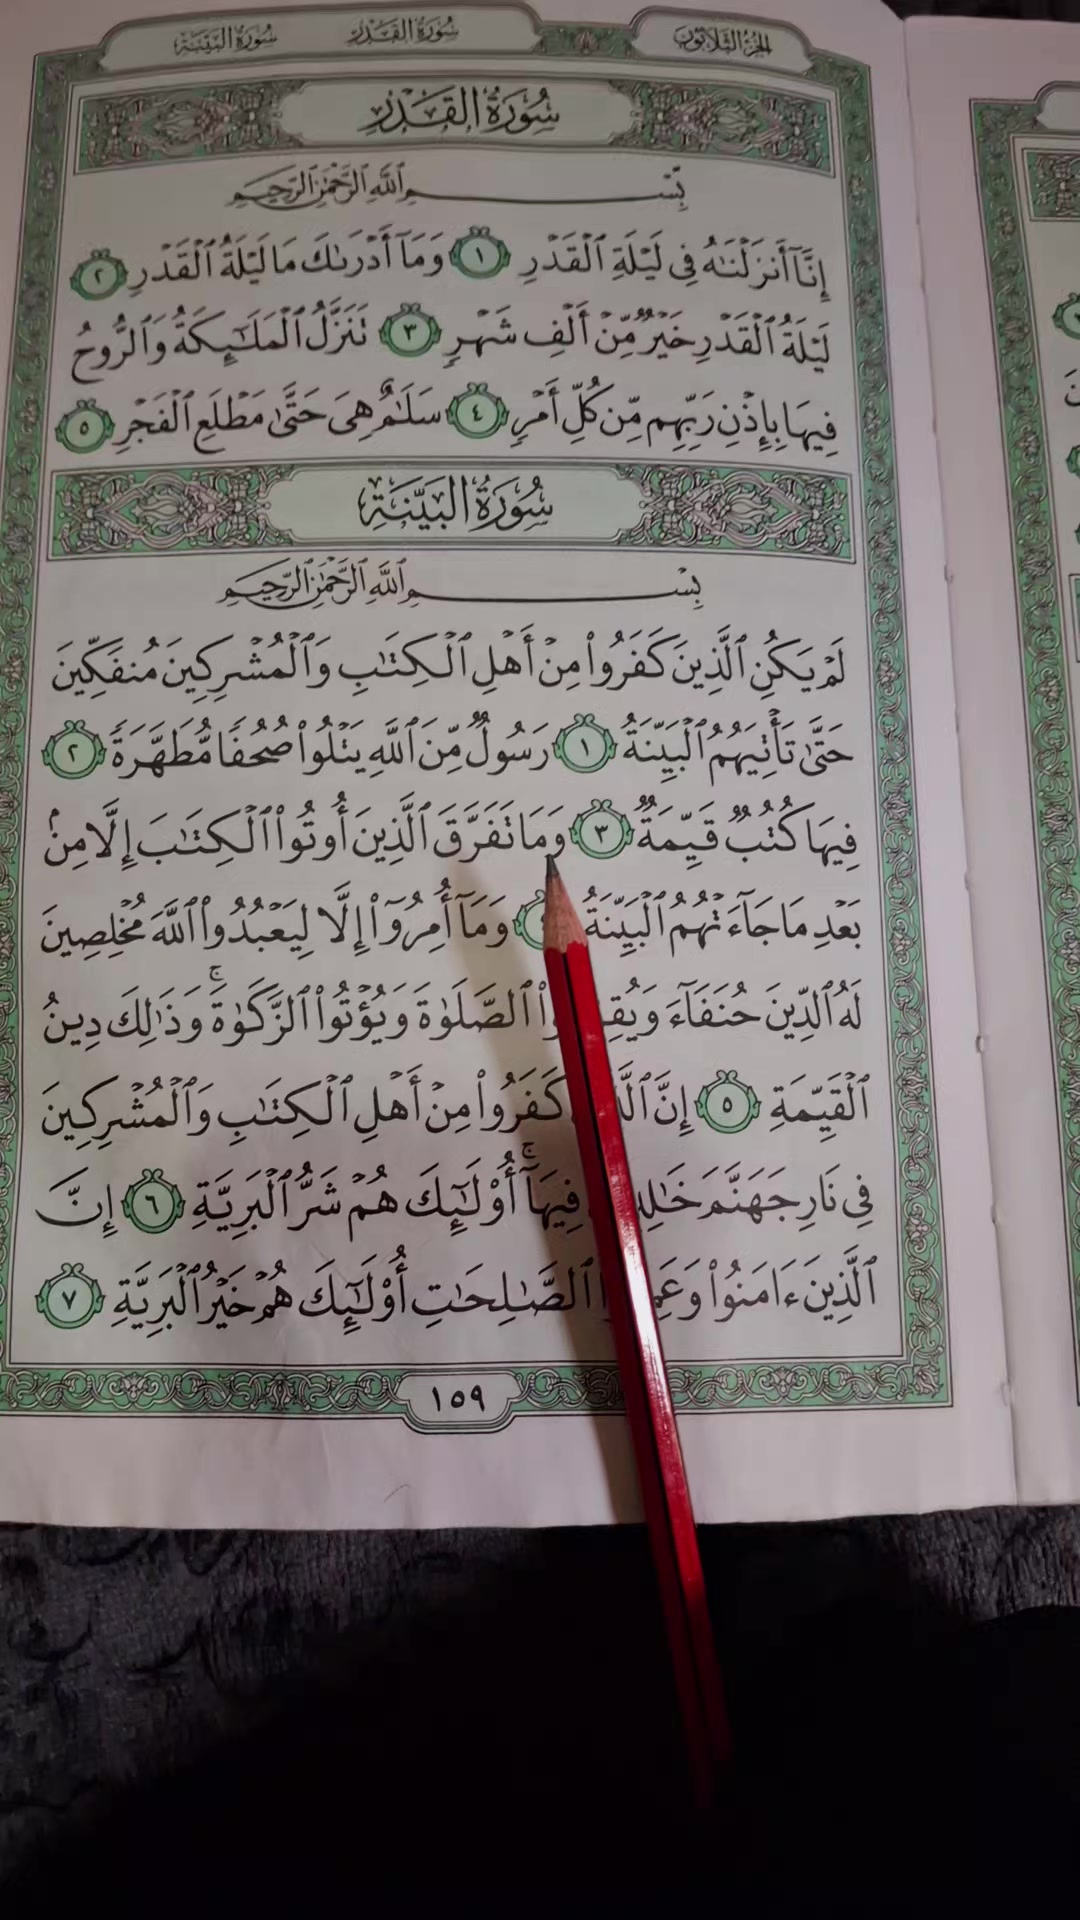 الجزء الثلاثون سورة القدر سورة البينة
سُورَةُ القَدْرِ
بِسْمِ ٱللَّهِ ٱلرَّحْمَٰنِ ٱلرَّحِيمِ
إِنَّآ أَنزَلْنَٰهُ فِى لَيْلَةِ ٱلْقَدْرِ ١ وَمَآ أَدْرَىٰكَ مَا لَيْلَةُ ٱلْقَدْرِ ٢
لَيْلَةُ ٱلْقَدْرِ خَيْرٌ مِّنْ أَلْفِ شَهْرٍ ٣ تَنَزَّلُ ٱلْمَلَٰٓئِكَةُ وَٱلرُّوحُ
فِيهَا بِإِذْنِ رَبِّهِم مِّن كُلِّ أَمْرٍ ٤ سَلَٰمٌ هِىَ حَتَّىٰ مَطْلَعِ ٱلْفَجْرِ ٥
سُورَةُ البَيِّنَةِ
بِسْمِ ٱللَّهِ ٱلرَّحْمَٰنِ ٱلرَّحِيمِ
لَمْ يَكُنِ ٱلَّذِينَ كَفَرُوا۟ مِنْ أَهْلِ ٱلْكِتَٰبِ وَٱلْمُشْرِكِينَ مُنفَكِّينَ
حَتَّىٰ تَأْتِيَهُمُ ٱلْبَيِّنَةُ ١ رَسُولٌ مِّنَ ٱللَّهِ يَتْلُوا۟ صُحُفًا مُّطَهَّرَةً ٢
فِيهَا كُتُبٌ قَيِّمَةٌ ٣ وَمَا تَفَرَّقَ ٱلَّذِينَ أُوتُوا۟ ٱلْكِتَٰبَ إِلَّا مِنۢ
بَعْدِ مَا جَآءَتْهُمُ ٱلْبَيِّنَةُ وَمَآ أُمِرُوٓا۟ إِلَّا لِيَعْبُدُوا۟ ٱللَّهَ مُخْلِصِينَ
لَهُ ٱلدِّينَ حُنَفَآءَ ٱلصَّلَوٰةَ وَيُؤْتُوا۟ ٱلزَّكَوٰةَ ۚ وَذَٰلِكَ دِينُ
ٱلْقَيِّمَةِ ٥ إِنَّ كَفَرُوا۟ مِنْ أَهْلِ ٱلْكِتَٰبِ وَٱلْمُشْرِكِينَ
فِى نَارِ جَهَنَّمَ فِيهَآ ۚ أُو۟لَٰٓئِكَ هُمْ شَرُّ ٱلْبَرِيَّةِ ٦ إِنَّ
ٱلَّذِينَ ءَامَنُوا۟ ٱلصَّٰلِحَٰتِ أُو۟لَٰٓئِكَ هُمْ خَيْرُ ٱلْبَرِيَّةِ ٧
١٥٩